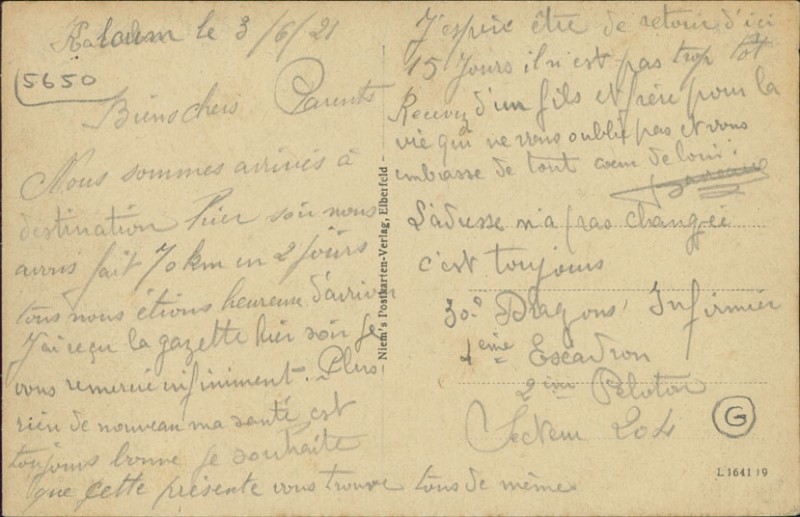 le 3/6/21
5650
Biens chers Parents
Nous sommes arrivés à
destination hier soir nous
avons fait 70 km en 2 jours
tous nous étions heureux d'arriver
J'ai reçu la gazette hier soir Je
vous remercie infiniment. Plus
rien de nouveau ma santé est
toujours bonne je souhaite
que cette présente vous trouve tous de même
Niem's Postkarten-Verlag, Elberfeld -
J'espère être de retour d'ici
15 Jours il n'est pas trop tôt
Recevez d'un fils et frère pour la
vie qui ne vous oublie pas et vous
embrasse de tout coeur de loin:
L'adresse n'a pas changéi
c'est toujours
30e Dragons Infirmier
4eme Escadron
2eme Peloton
Secteur 204
G
L 1641 19